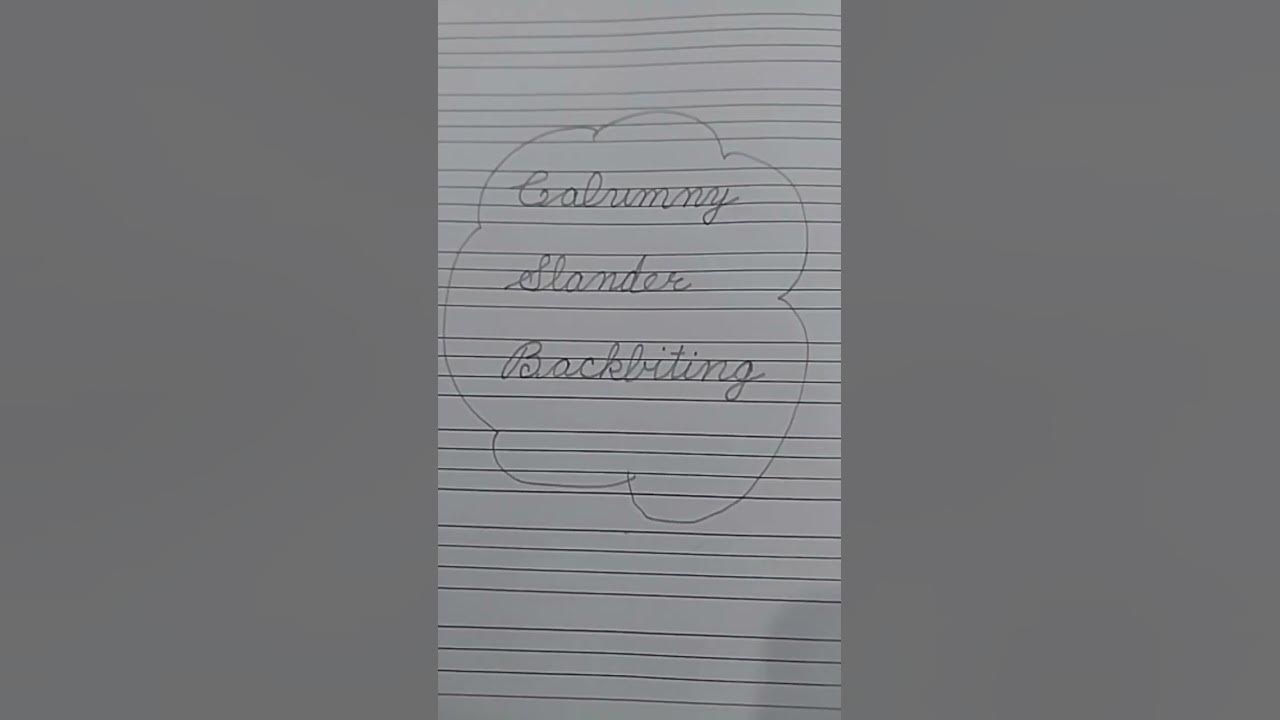 Calumny
Slander
Backbiting